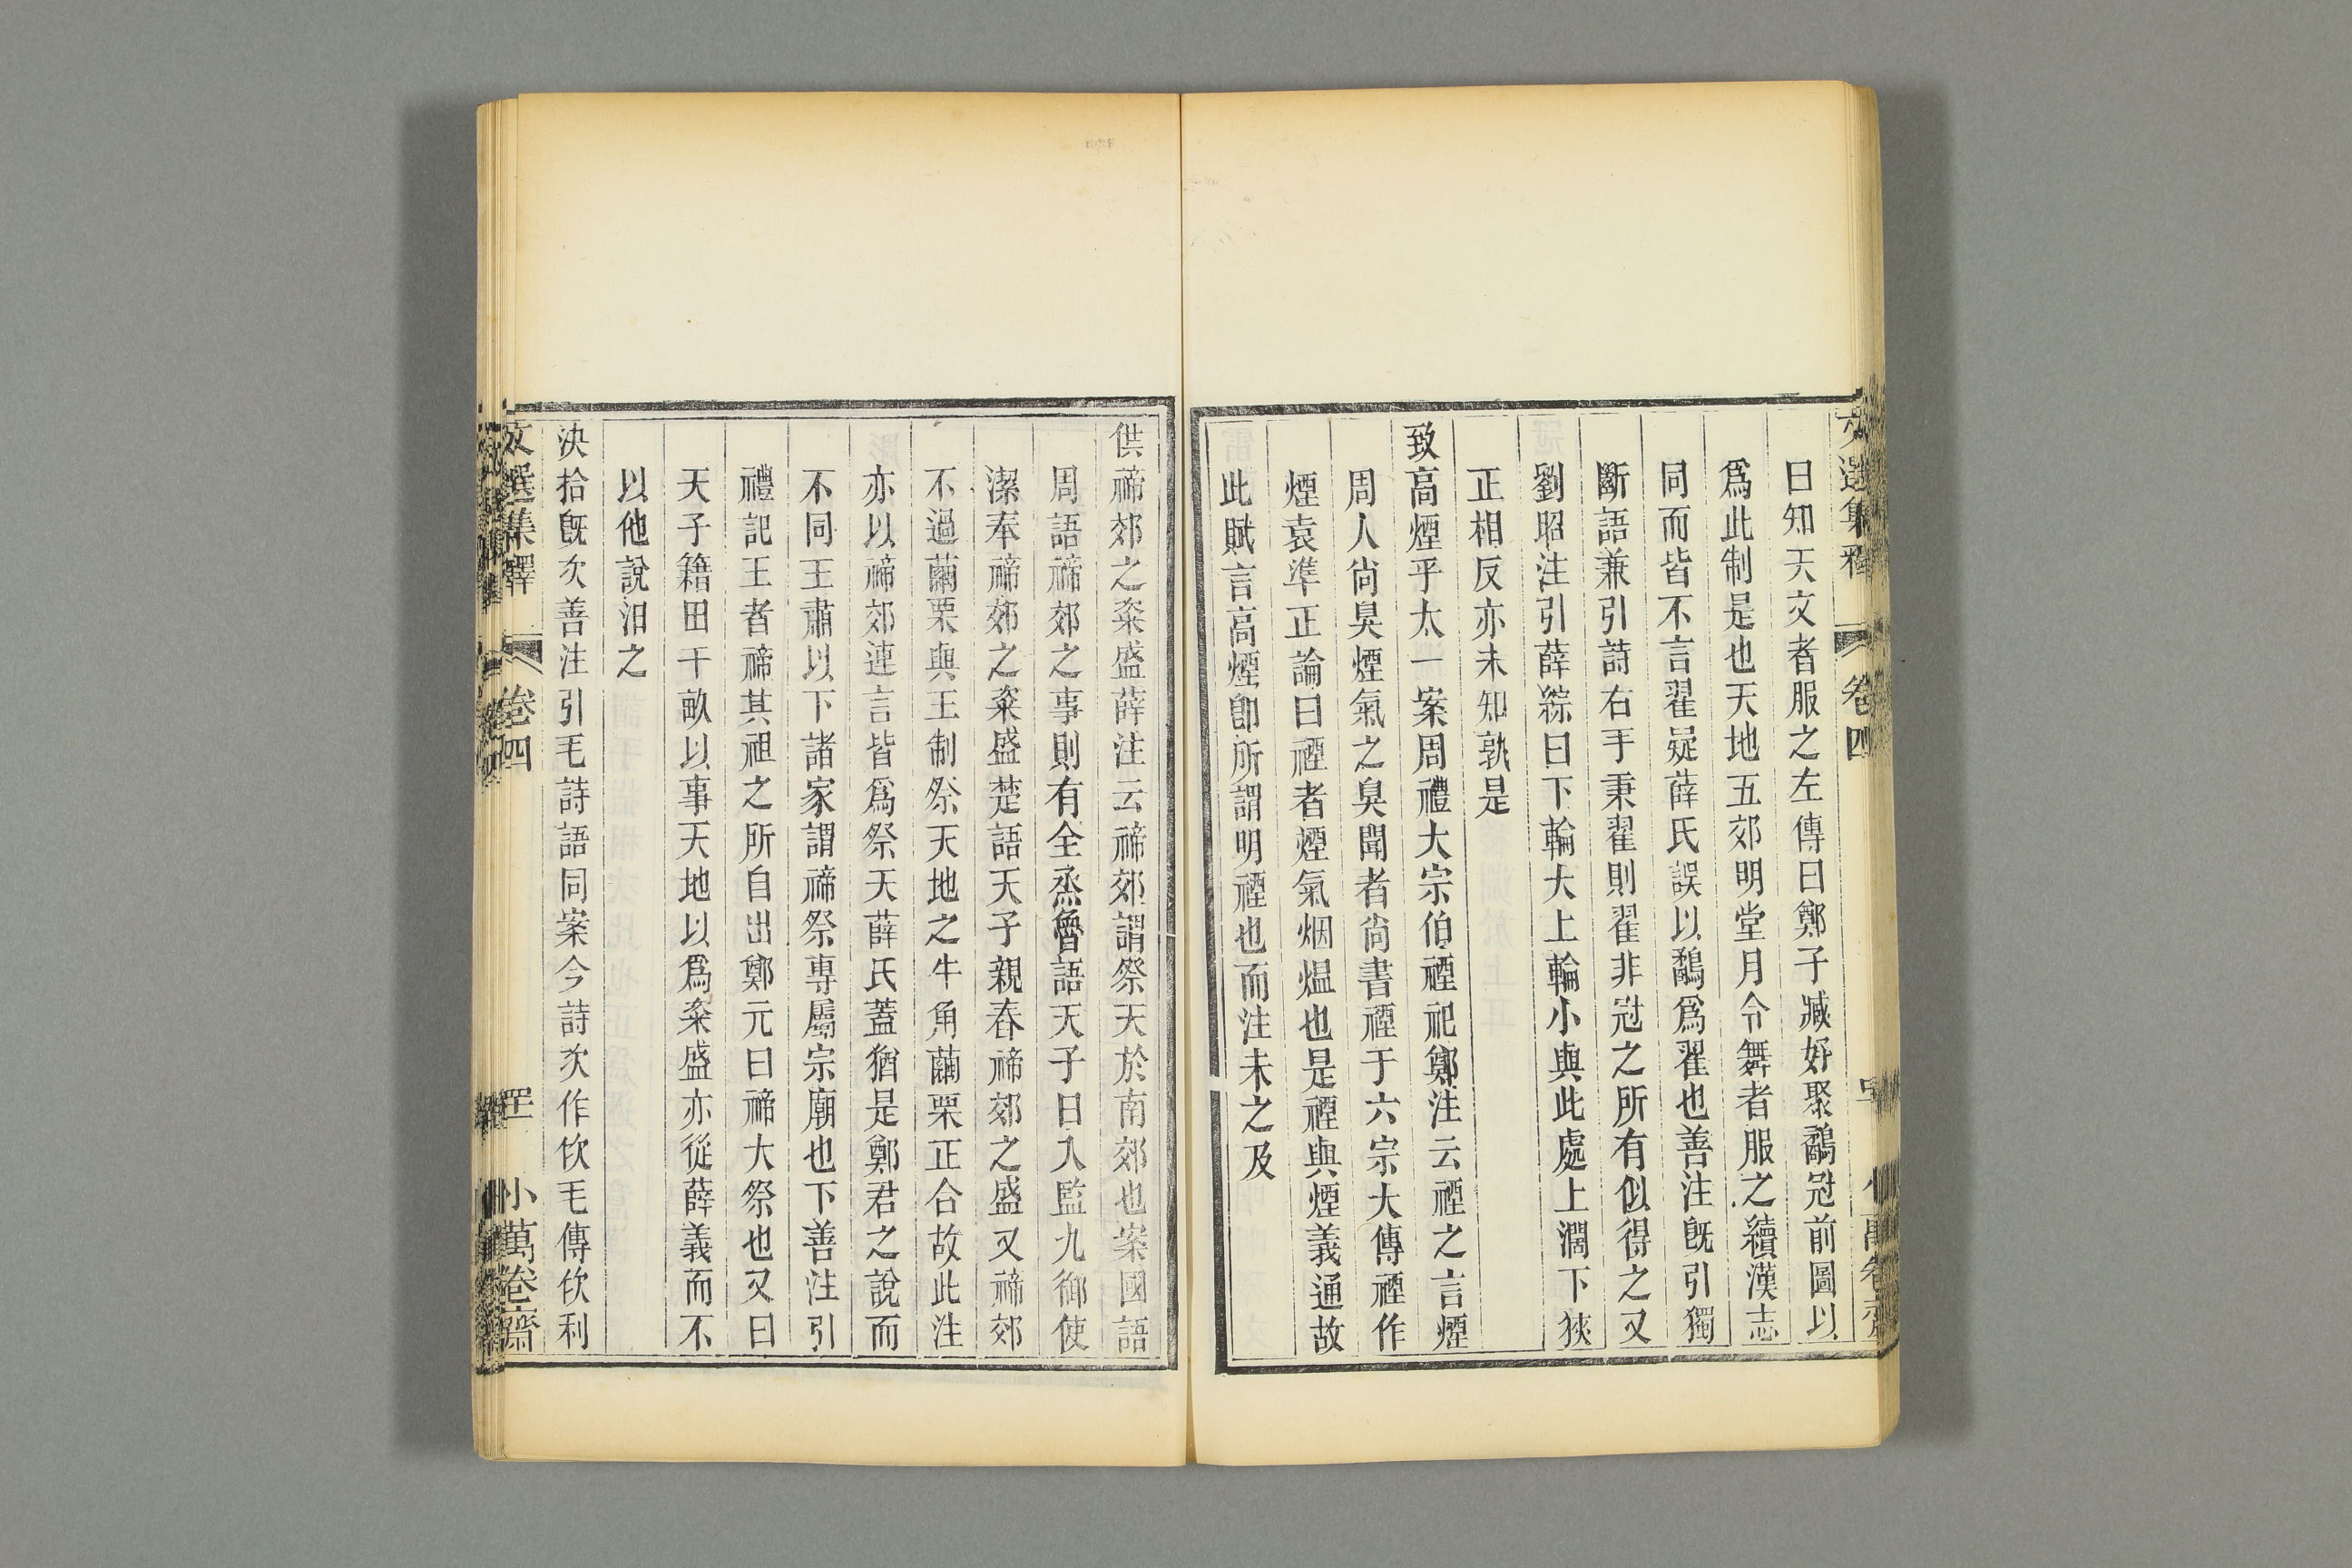 文選集釋 卷四
曰知天文者服之左傳曰鄭子臧好聚鷸冠前圖以
爲此制是也天地五郊明堂月令舞者服之續漢志
同而皆不言翟疑薛氏誤以鷸爲翟也善注旣引獨
斷語兼引詩右手秉翟則翟非冠之所有似得之又
劉昭注引薛綜曰下輪大上輪小與此處上濶下狹
正相反亦未知孰是
致高煙乎太一案周禮大宗伯禋祀鄭注云禋之言煙
周人尙臭煙氣之臭聞者尙書禋于六宗大傳禋作
煙袁準正論曰禋者煙氣烟煴也是禋與煙義通故
此賦言高煙卽所謂明禋也而注未之及
供禘郊之粢盛薛注云禘郊謂祭天於南郊也案國語
周語禘郊之事則有全烝魯語天子日入監九御使
潔奉禘郊之粢盛楚語天子親舂禘郊之盛又禘郊
不過繭栗與王制祭天地之牛角繭栗正合故此注
亦以禘郊連言皆爲祭天薛氏蓋猶是鄭君之說而
不同王肅以下諸家謂禘祭專屬宗廟也下善注引
禮記王者禘其祖之所自出鄭元曰禘大祭也又曰
天子籍田千畝以事天地以爲粢盛亦從薛義而不
以他說汨之
決拾旣次善注引毛詩語同案今詩次作佽毛傳佽利
文選集釋 卷四 小萬卷齋